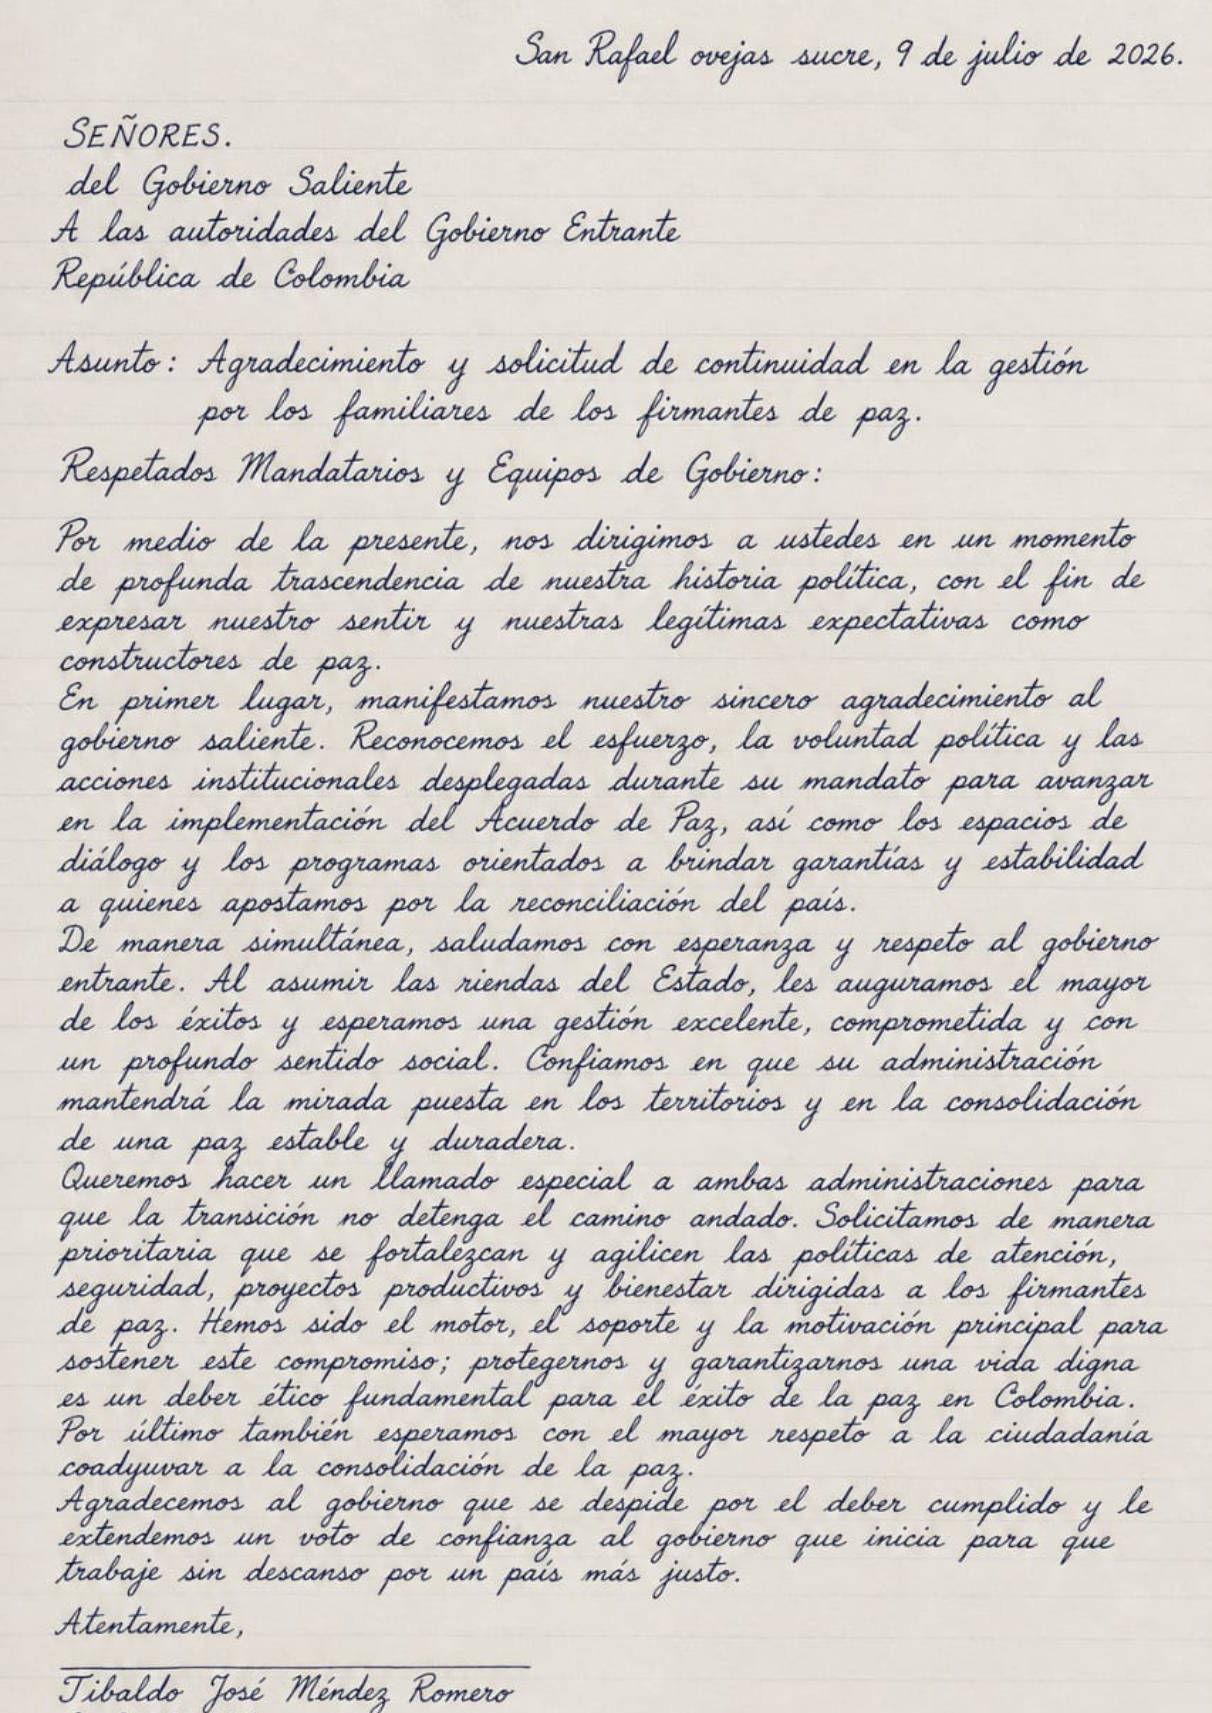 San Rafael ovejas sucre, 9 de julio de 2026.
SEÑORES.
del Gobierno Saliente
A las autoridades del Gobierno Entrante
República de Colombia
Asunto: Agradecimiento y solicitud de continuidad en la gestión
por los familiares de los firmantes de paz.
Respetados Mandatarios y Equipos de Gobierno:
Por medio de la presente, nos dirigimos a ustedes en un momento
de profunda trascendencia de nuestra historia política, con el fin de
expresar nuestro sentir y nuestras legítimas expectativas como
constructores de paz.
En primer lugar, manifestamos nuestro sincero agradecimiento al
gobierno saliente. Reconocemos el esfuerzo, la voluntad política y las
acciones institucionales desplegadas durante su mandato para avanzar
en la implementación del Acuerdo de Paz, así como los espacios de
diálogo y los programas orientados a brindar garantías y estabilidad
a quienes apostamos por la reconciliación del país.
De manera simultánea, saludamos con esperanza y respeto al gobierno
entrante. Al asumir las riendas del Estado, les auguramos el mayor
de los éxitos y esperamos una gestión excelente, comprometida y con
un profundo sentido social. Confiamos en que su administración
mantendrá la mirada puesta en los territorios y en la consolidación
de una paz estable y duradera.
Queremos hacer un llamado especial a ambas administraciones para
que la transición no detenga el camino andado. Solicitamos de manera
prioritaria que se fortalezcan y agilicen las políticas de atención,
seguridad, proyectos productivos y bienestar dirigidas a los firmantes
de paz. Hemos sido el motor, el soporte y la motivación principal para
sostener este compromiso; protegernos y garantizarnos una vida digna
es un deber ético fundamental para el éxito de la paz en Colombia.
Por último también esperamos con el mayor respeto a la ciudadanía
coadyuvar a la consolidación de la paz.
Agradecemos al gobierno que se despide por el deber cumplido y le
extendemos un voto de confianza al gobierno que inicia para que
trabaje sin descanso por un país más justo.
Atentamente,
Tibaldo José Méndez Romero